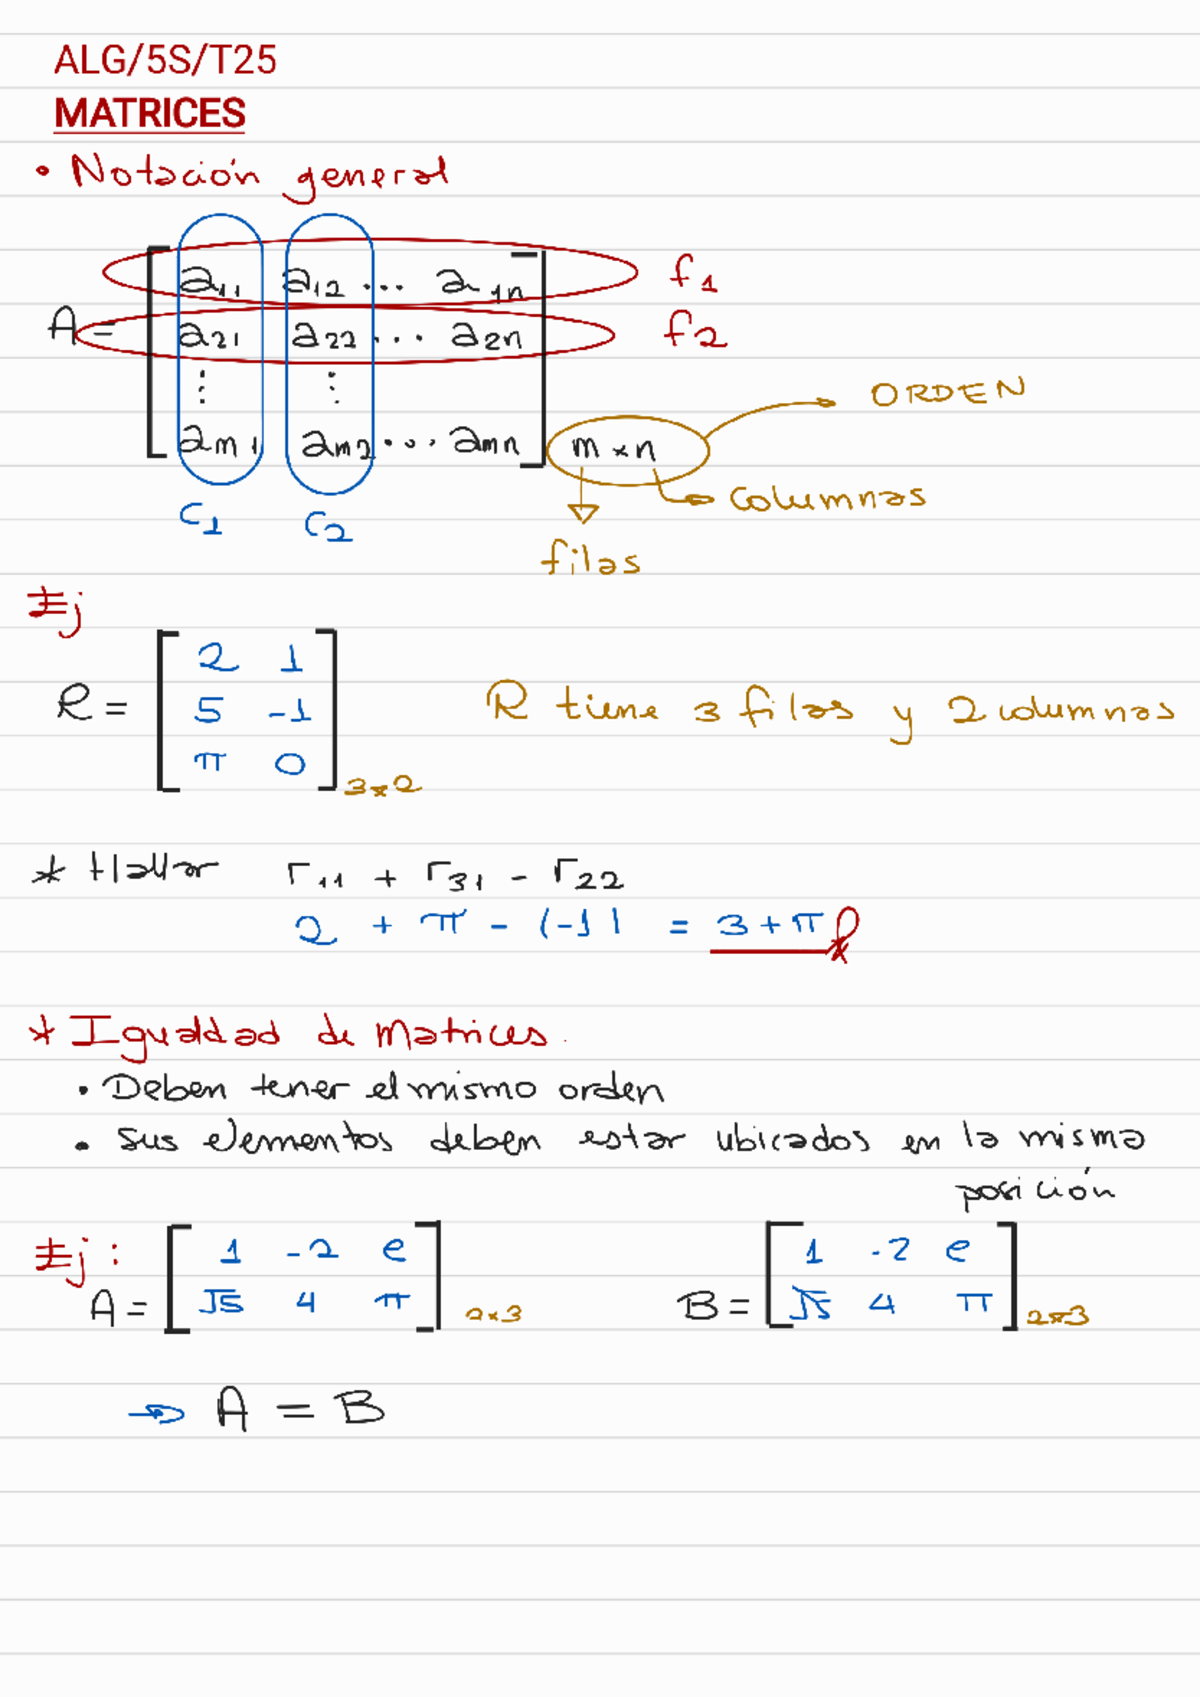 ALG/5S/T25
MATRICES
• Notación general
a11 a12 ... a1n f1
A = a21 a22 ... a2n f2
⋮ ⋮
ORDEN
am1 am2 ... amn m × n
columnas
c1 c2
filas
Ej
2 1
R = 5 -1 R tiene 3 filas y 2 columnas
π 0
3×2
* Hallar r11 + r31 - r22
2 + π - (-1) = 3 + π
* Igualdad de Matrices.
• Deben tener el mismo orden
• Sus elementos deben estar ubicados en la misma
posición
Ej: 1 -2 e 1 -2 e
A = √5 4 π 2×3 B = √5 4 π 2×3
→ A = B